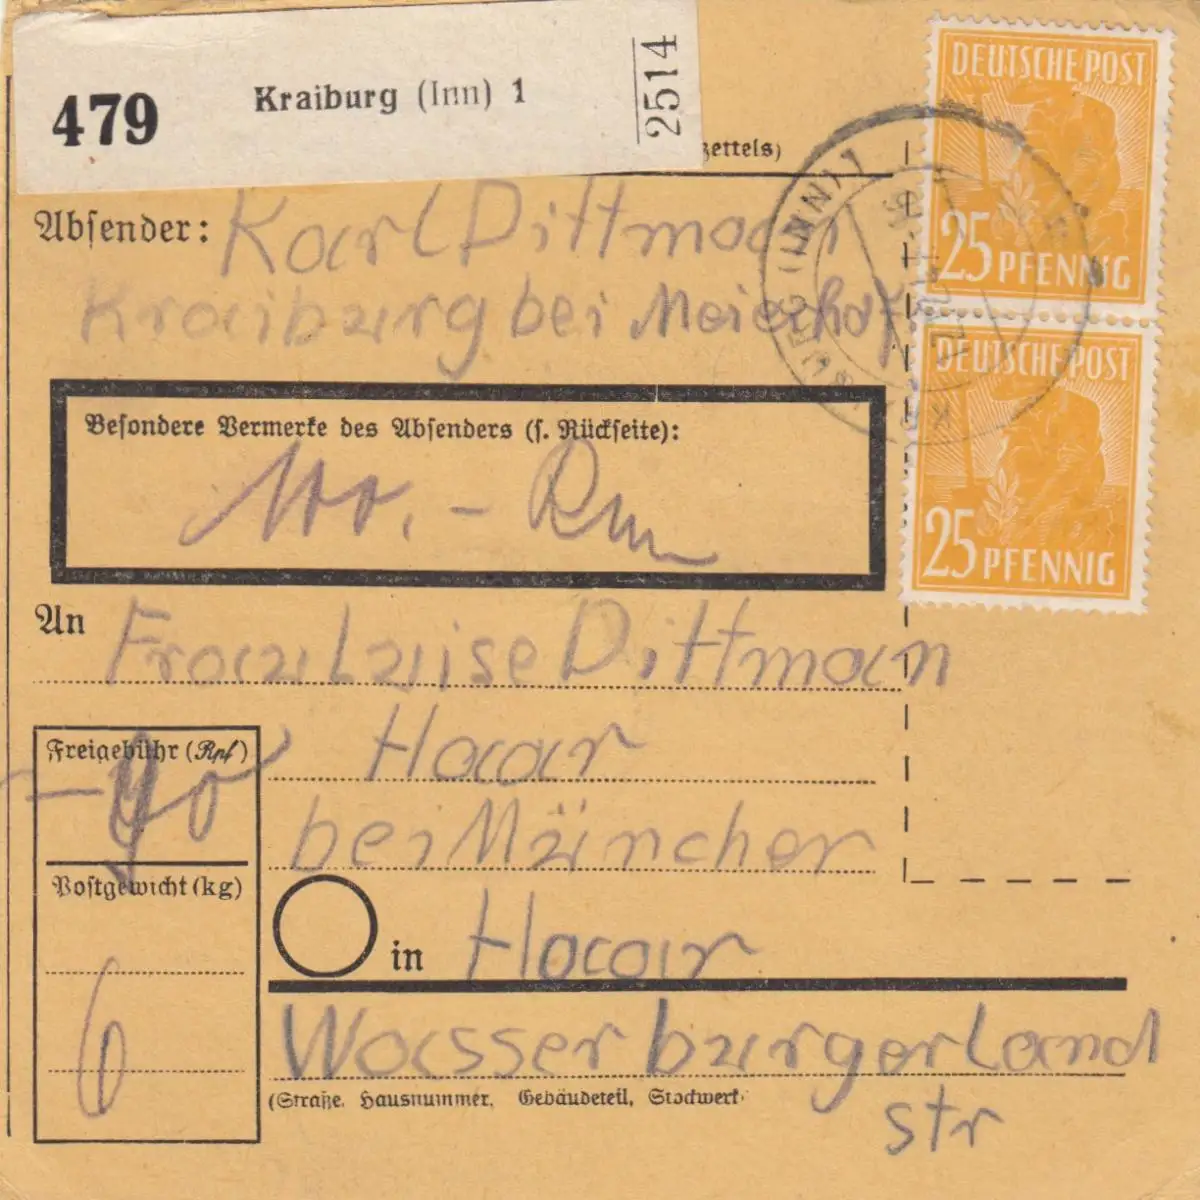 479 Kraiburg (Inn) 1 2514
zettels)
Absender: Karl Dittman
Kraiburg bei Meierhof
DEUTSCHE POST
25 PFENNIG
DEUTSCHE POST
25 PFENNIG
Besondere Vermerke des Absenders (s. Rückseite):
100.- Rm
An Frau Luise Dittman
Haar
bei Müincher
Freigebühr (Rpf)
-90
Postgewicht (kg)
6
in Haar
Wasserburgerland
(Straße, Hausnummer, Gebäudeteil, Stockwerk)
str